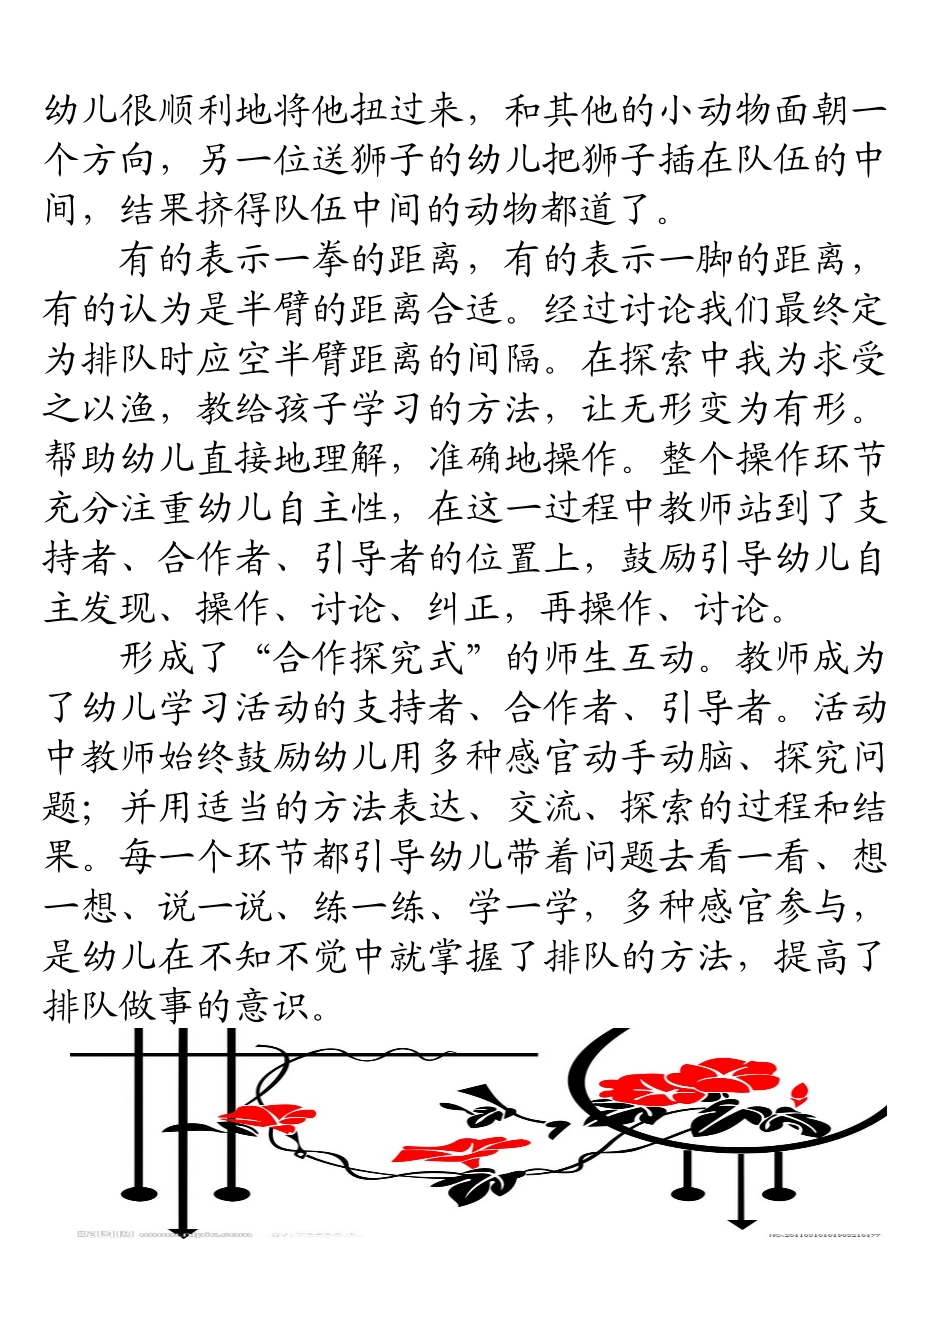 幼儿很顺利地将他扭过来，和其他的小动物面朝一
个方向，另一位送狮子的幼儿把狮子插在队伍的中
间，结果挤得队伍中间的动物都道了。
有的表示一拳的距离，有的表示一脚的距离，
有的认为是半臂的距离合适。经过讨论我们最终定
为排队时应空半臂距离的间隔。在探索中我为求受
之以渔，教给孩子学习的方法，让无形变为有形。
帮助幼儿直接地理解，准确地操作。整个操作环节
充分注重幼儿自主性，在这一过程中教师站到了支
持者、合作者、引导者的位置上，鼓励引导幼儿自
主发现、操作、讨论、纠正，再操作、讨论。
形成了“合作探究式”的师生互动。教师成为
了幼儿学习活动的支持者、合作者、引导者。活动
中教师始终鼓励幼儿用多种感官动手动脑、探究问
题；并用适当的方法表达、交流、探索的过程和结
果。每一个环节都引导幼儿带着问题去看一看、想
一想、说一说、练一练、学一学，多种感官参与，
是幼儿在不知不觉中就掌握了排队的方法，提高了
排队做事的意识。